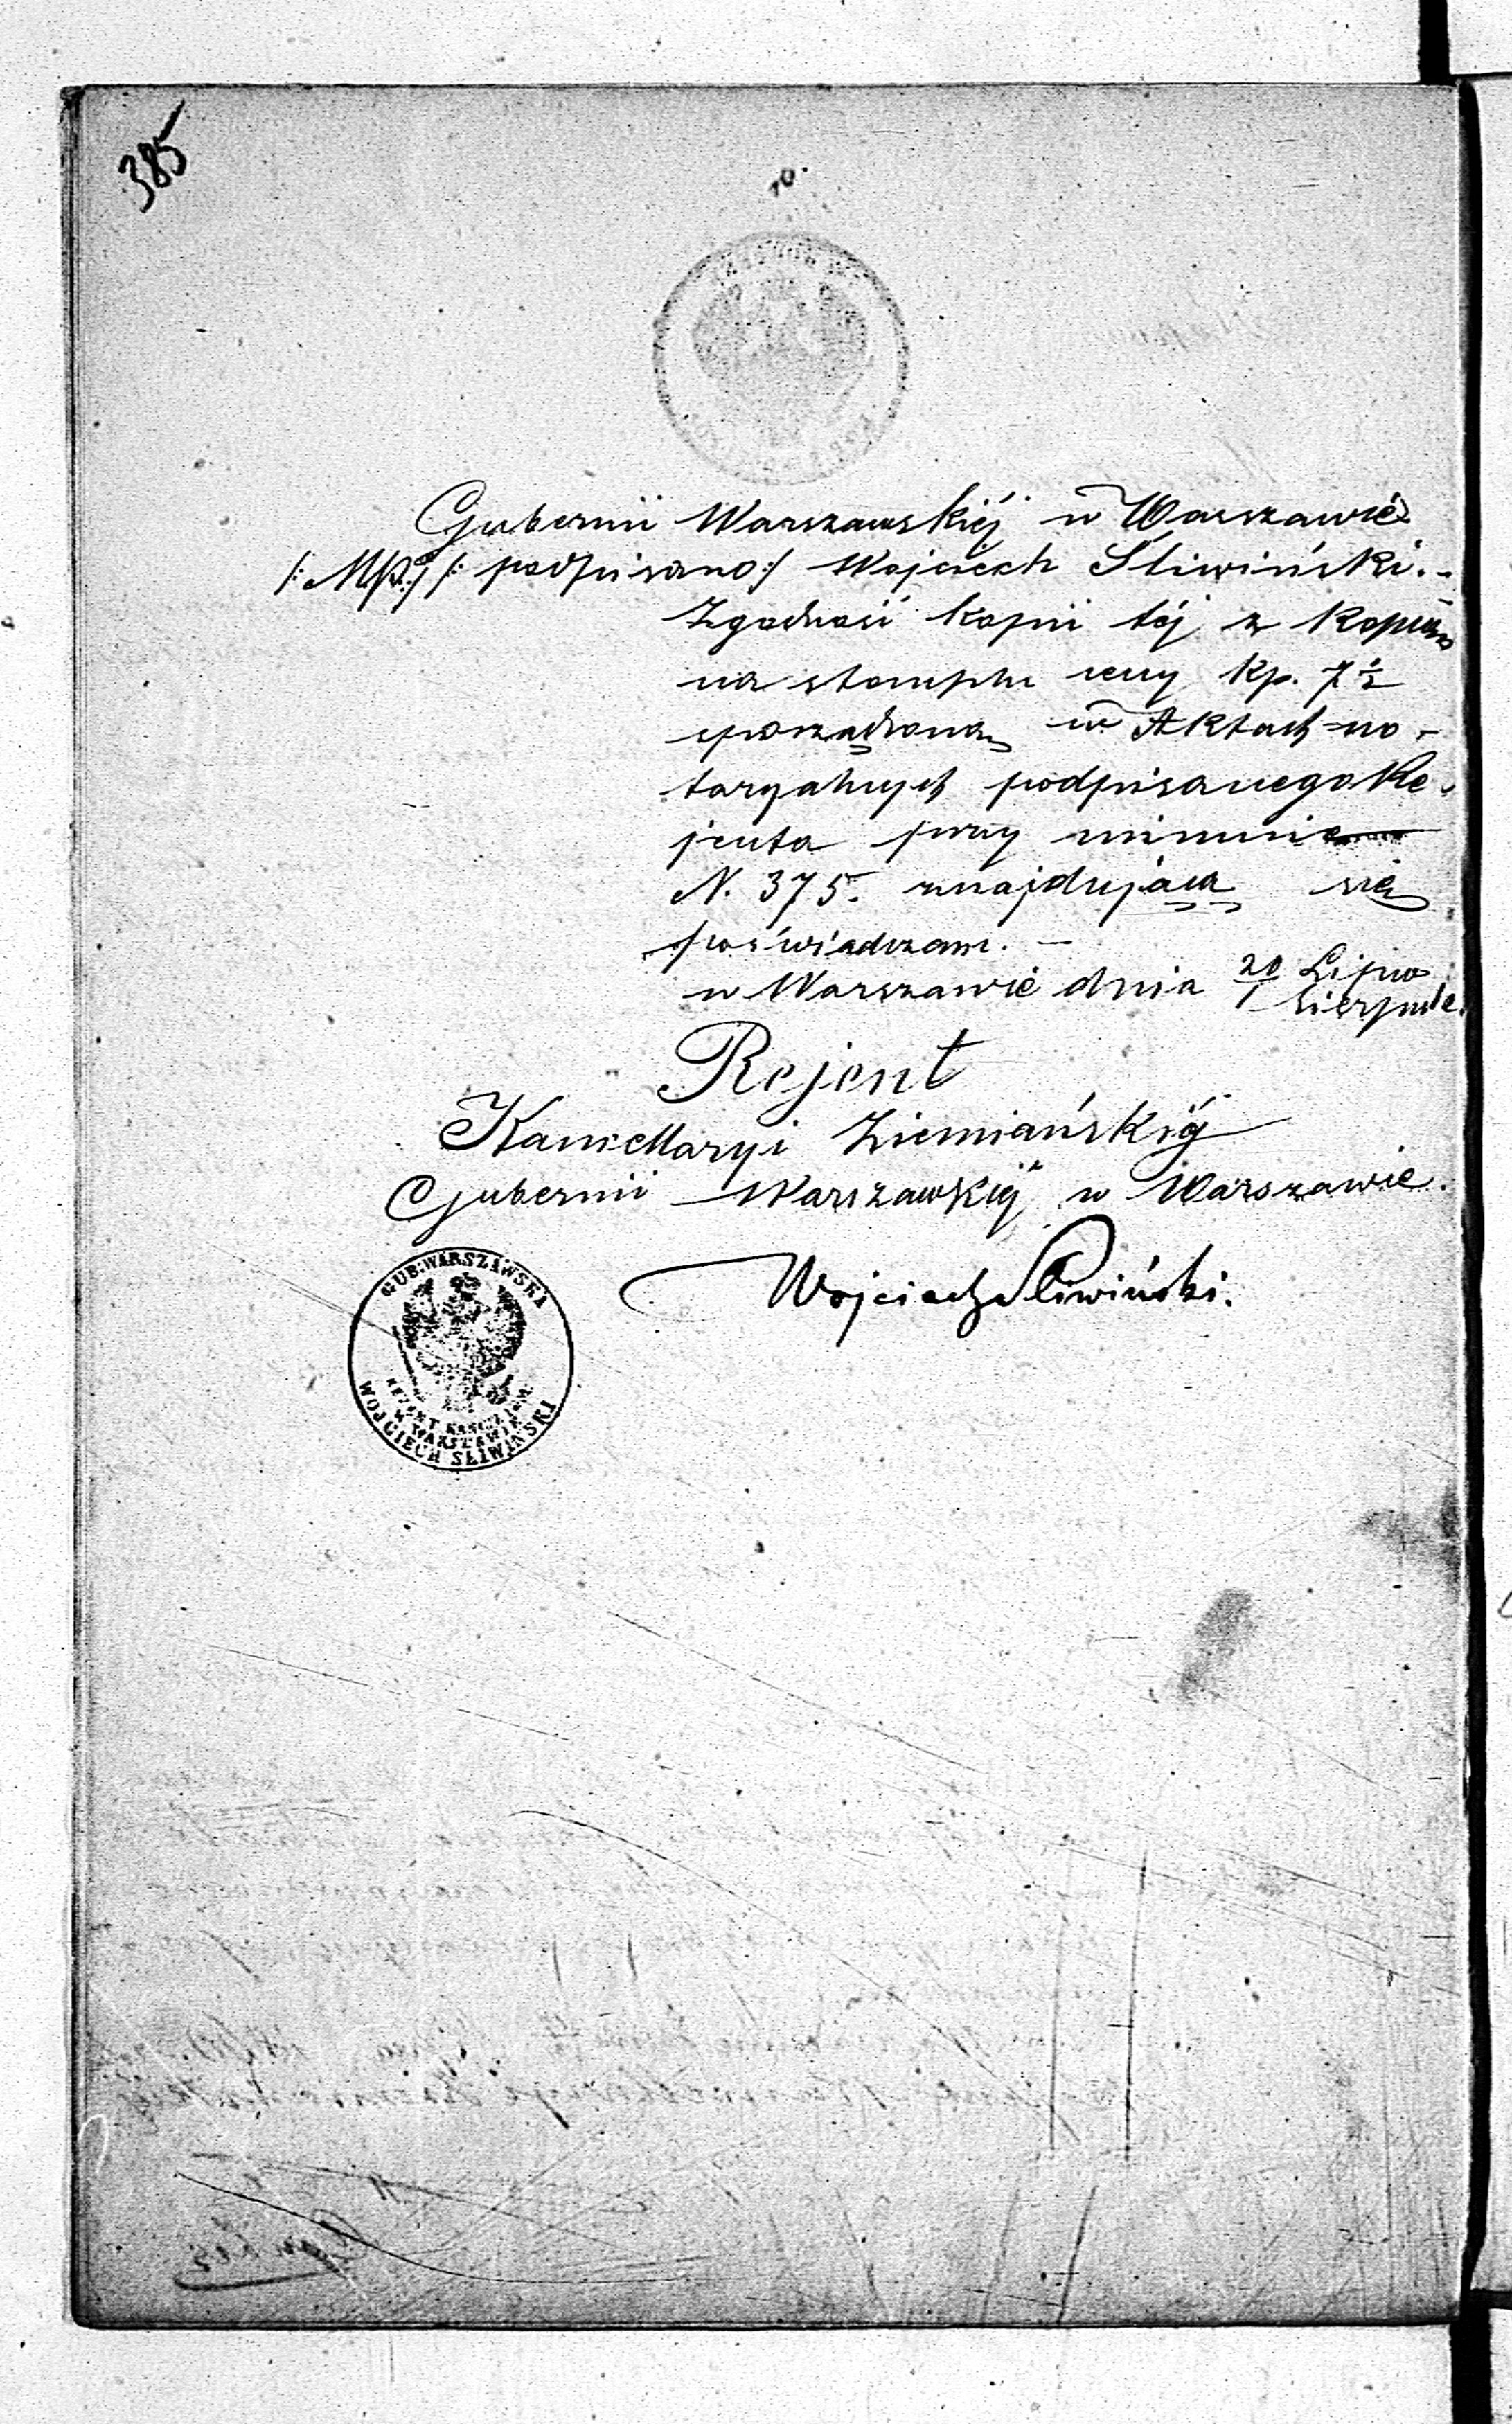 385
10.
Gubernii Warszawskiéj w Warszawie
/:MP:/ /: podpisano:/ Wojciech Śliwiński. -
Zgodność kopii téj z kopią
na stemplu ceny kp. 7½
sporządzoną w Aktach no-
taryalnych podpisanego Re-
jenta przy minucie
N. 375. znajdującą się
poświadczam. -
w Warszawie dnia 20/1 Lipca/Sierpnia
Rejent
Kancellaryi Ziemiańskiéj
Gubernii Warszawskiéj w Warszawie.
Wojciech Śliwiński.
GUB: WARSZAWSKA
REJENT KANC: ZIEM:
W WARSZAWIE
WOJCIECH ŚLIWIŃSKI